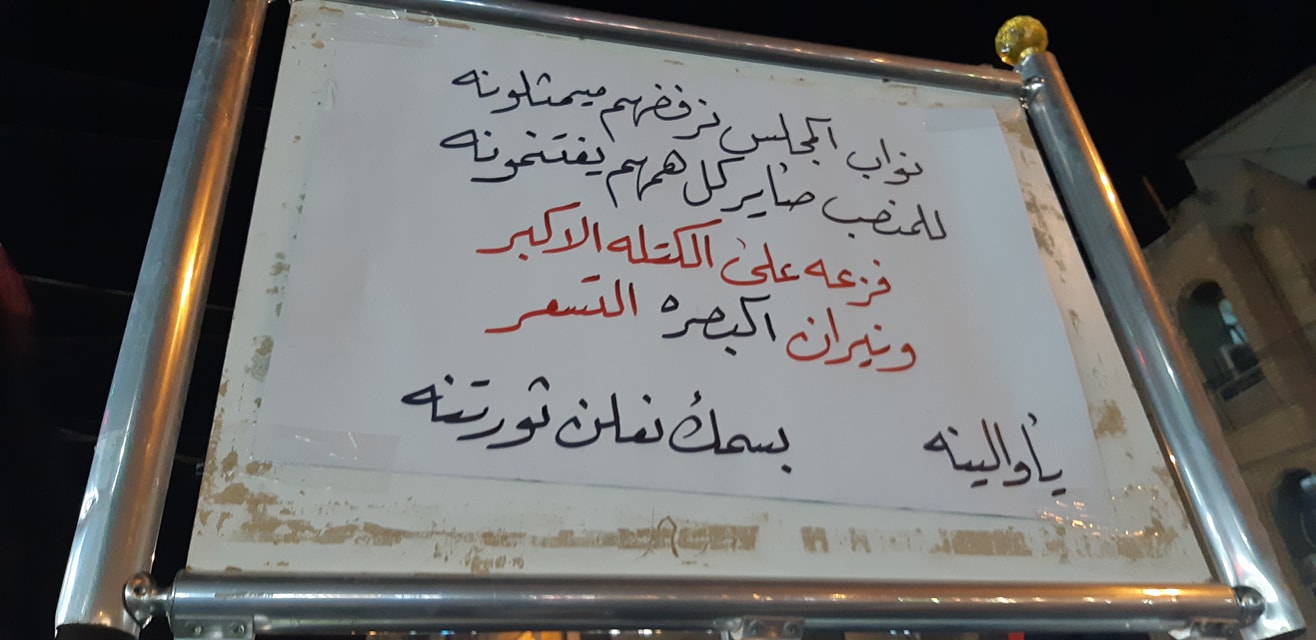 نواب المجلس نرفضهم ميمثلونه
للمنصب صاير كل همهم يغتنمونه
فزعه على الكتله الاكبر
ونيران البصره التسعر
يأوالينه بسمك نعلن ثورتنه